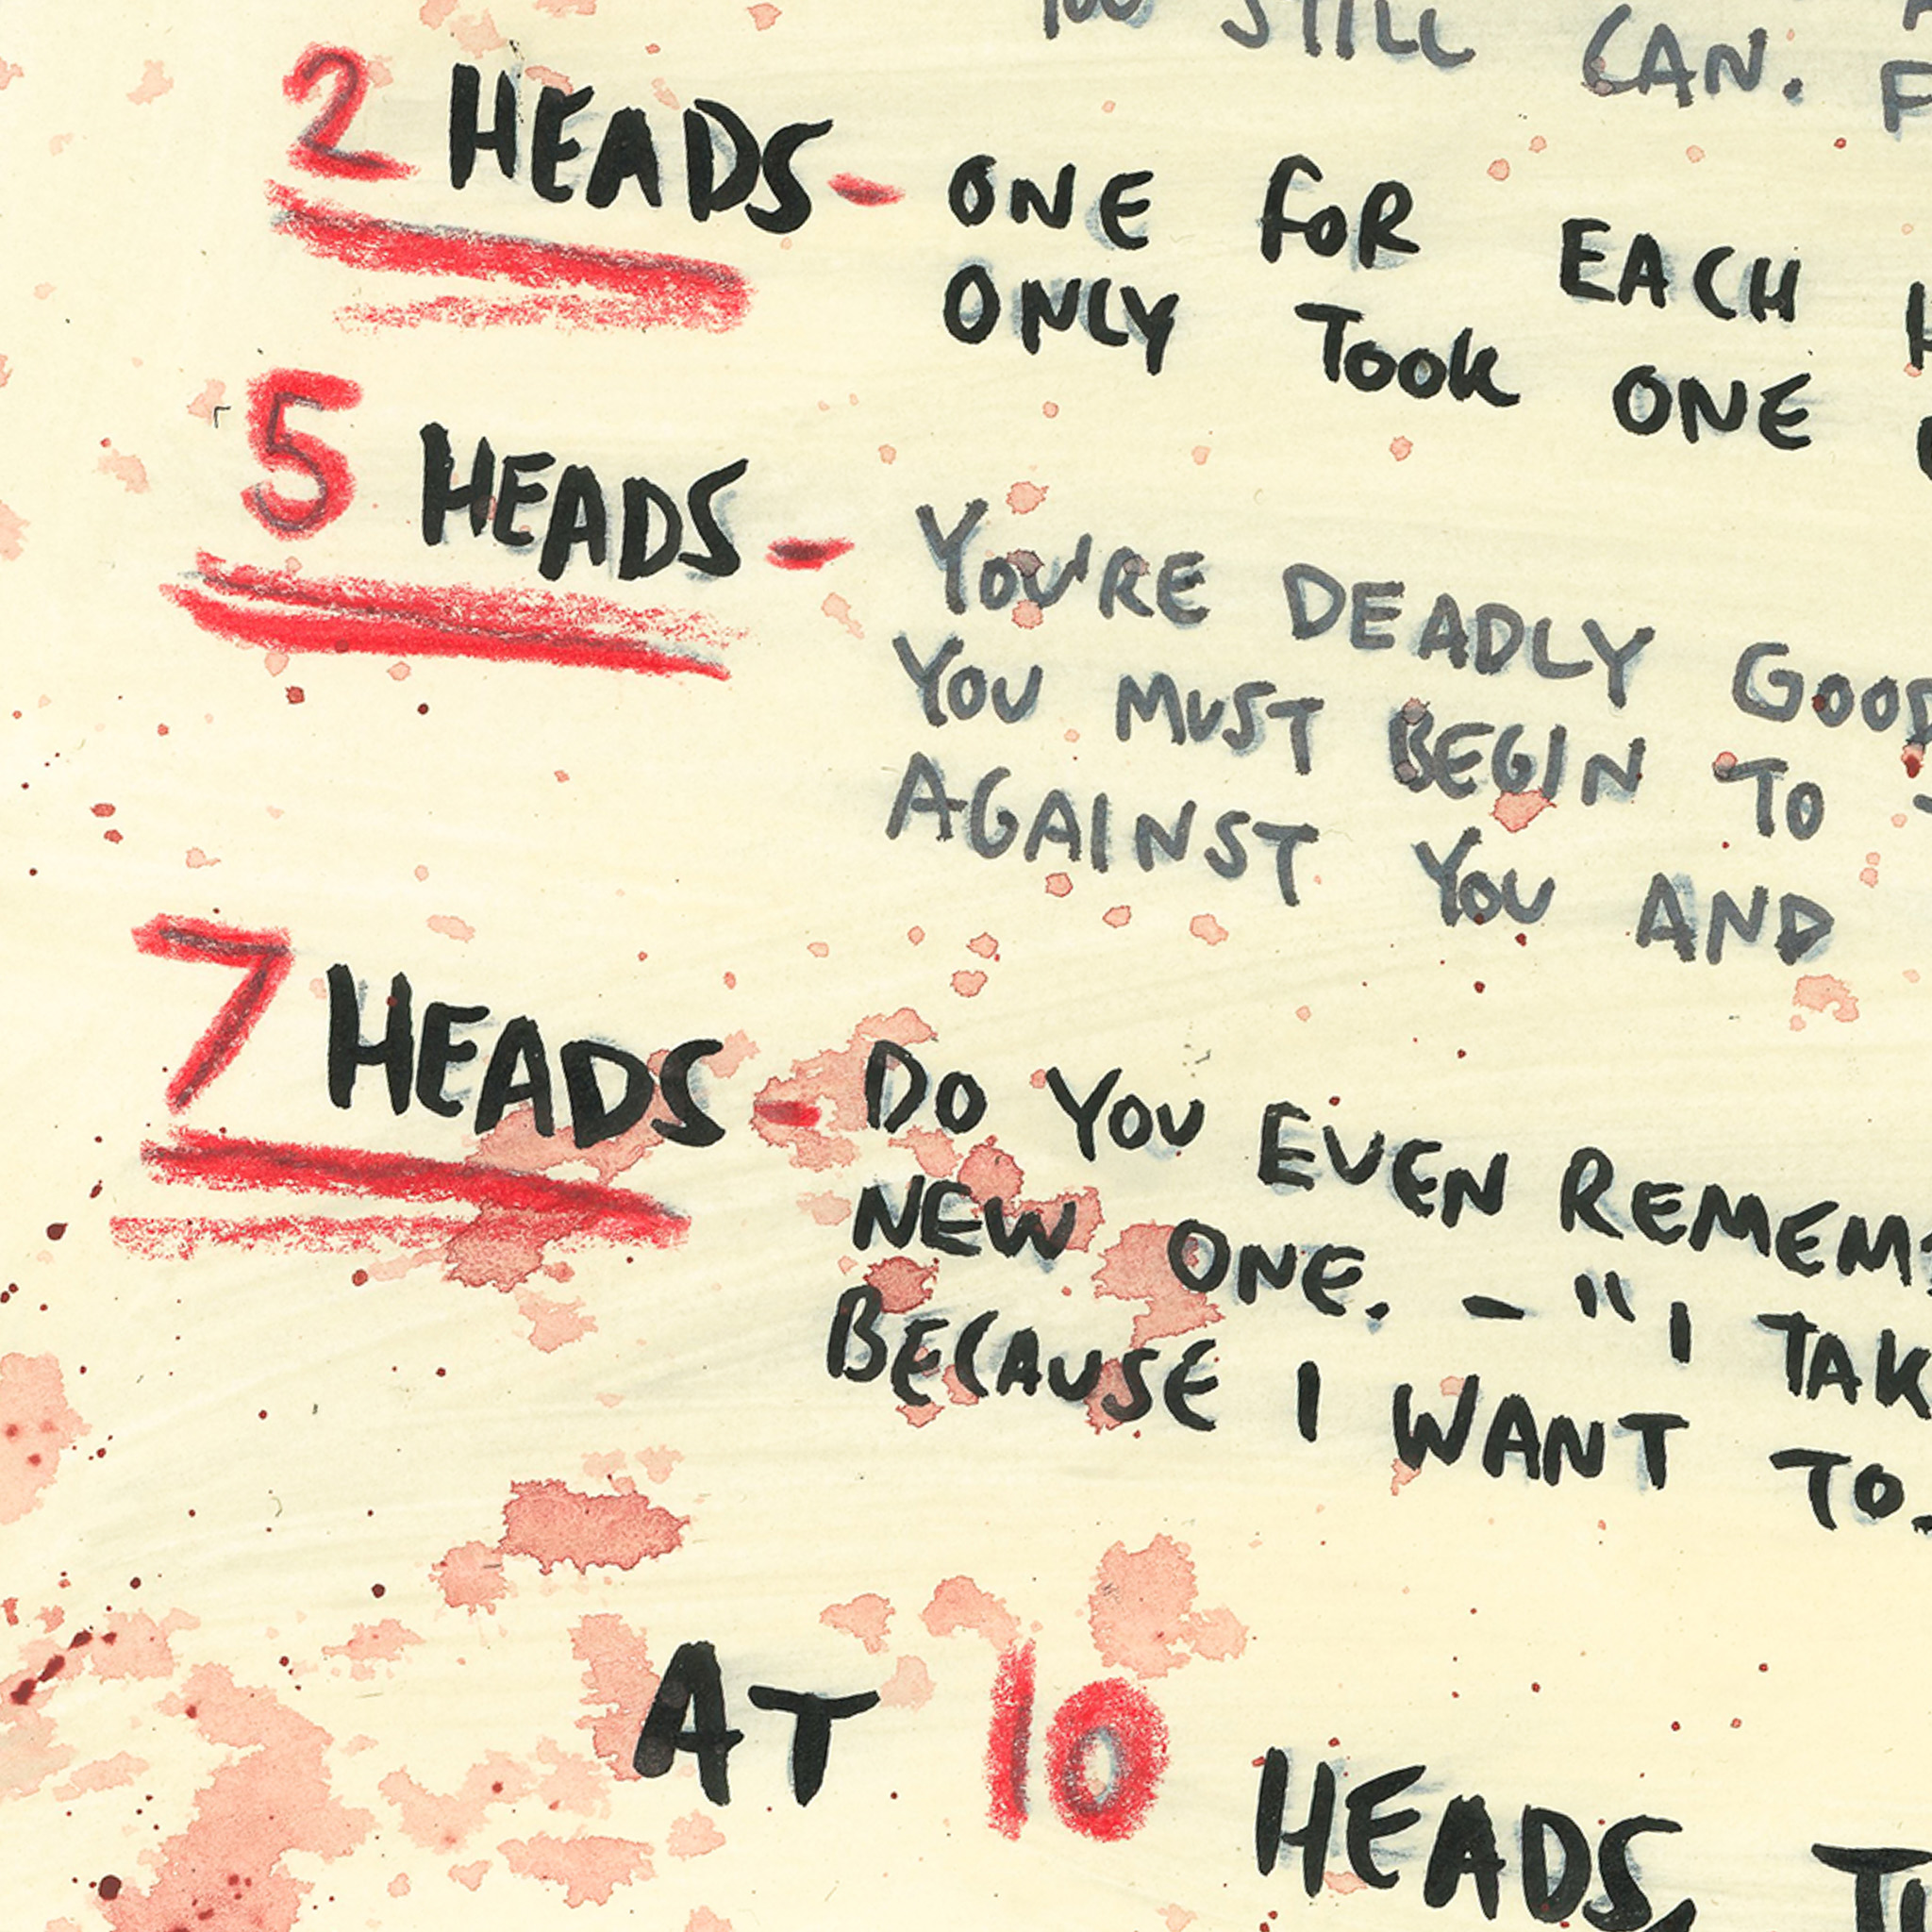 YOU STILL CAN.
2 HEADS - ONE FOR EACH
ONLY TOOK ONE
5 HEADS - YOU'RE DEADLY GOOD
YOU MUST BEGIN TO
AGAINST YOU AND
7 HEADS - DO YOU EVEN
NEW ONE. - "I
BECAUSE I WANT TO.
AT 10 HEADS,